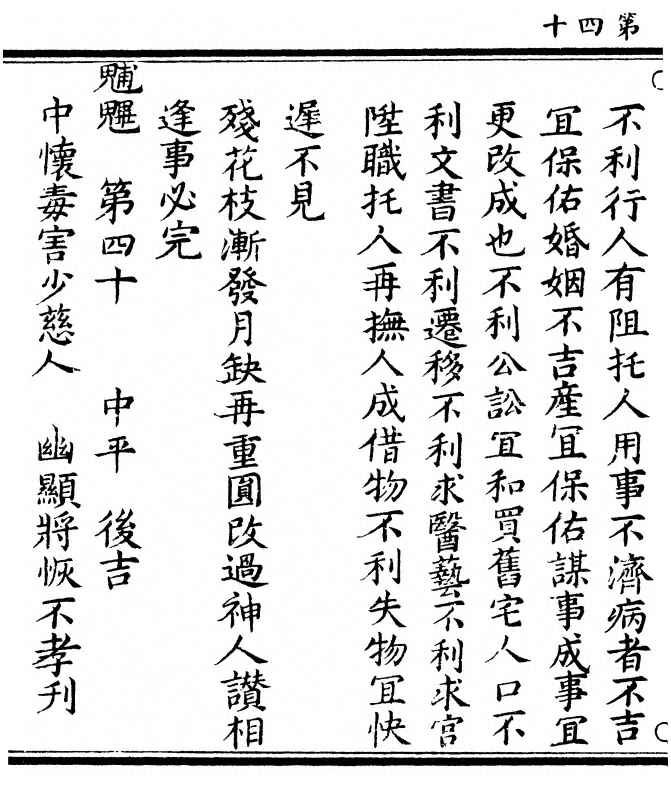 第四十
不利行人有阻托人用事不濟病者不吉
冝保佑婚姻不吉産冝保佑謀事成事冝
更改成也不利公訟冝和買舊宅人口不
利文書不利遷移不利求醫藝不利求官
陞職托人再撫人成借物不利失物冝快
遲不見
殘花枝漸發月缺再重圓改過神人讃相
逢事必完
第四十 中平 後吉
中懷毒害少慈人 幽顯將恢不孝刋